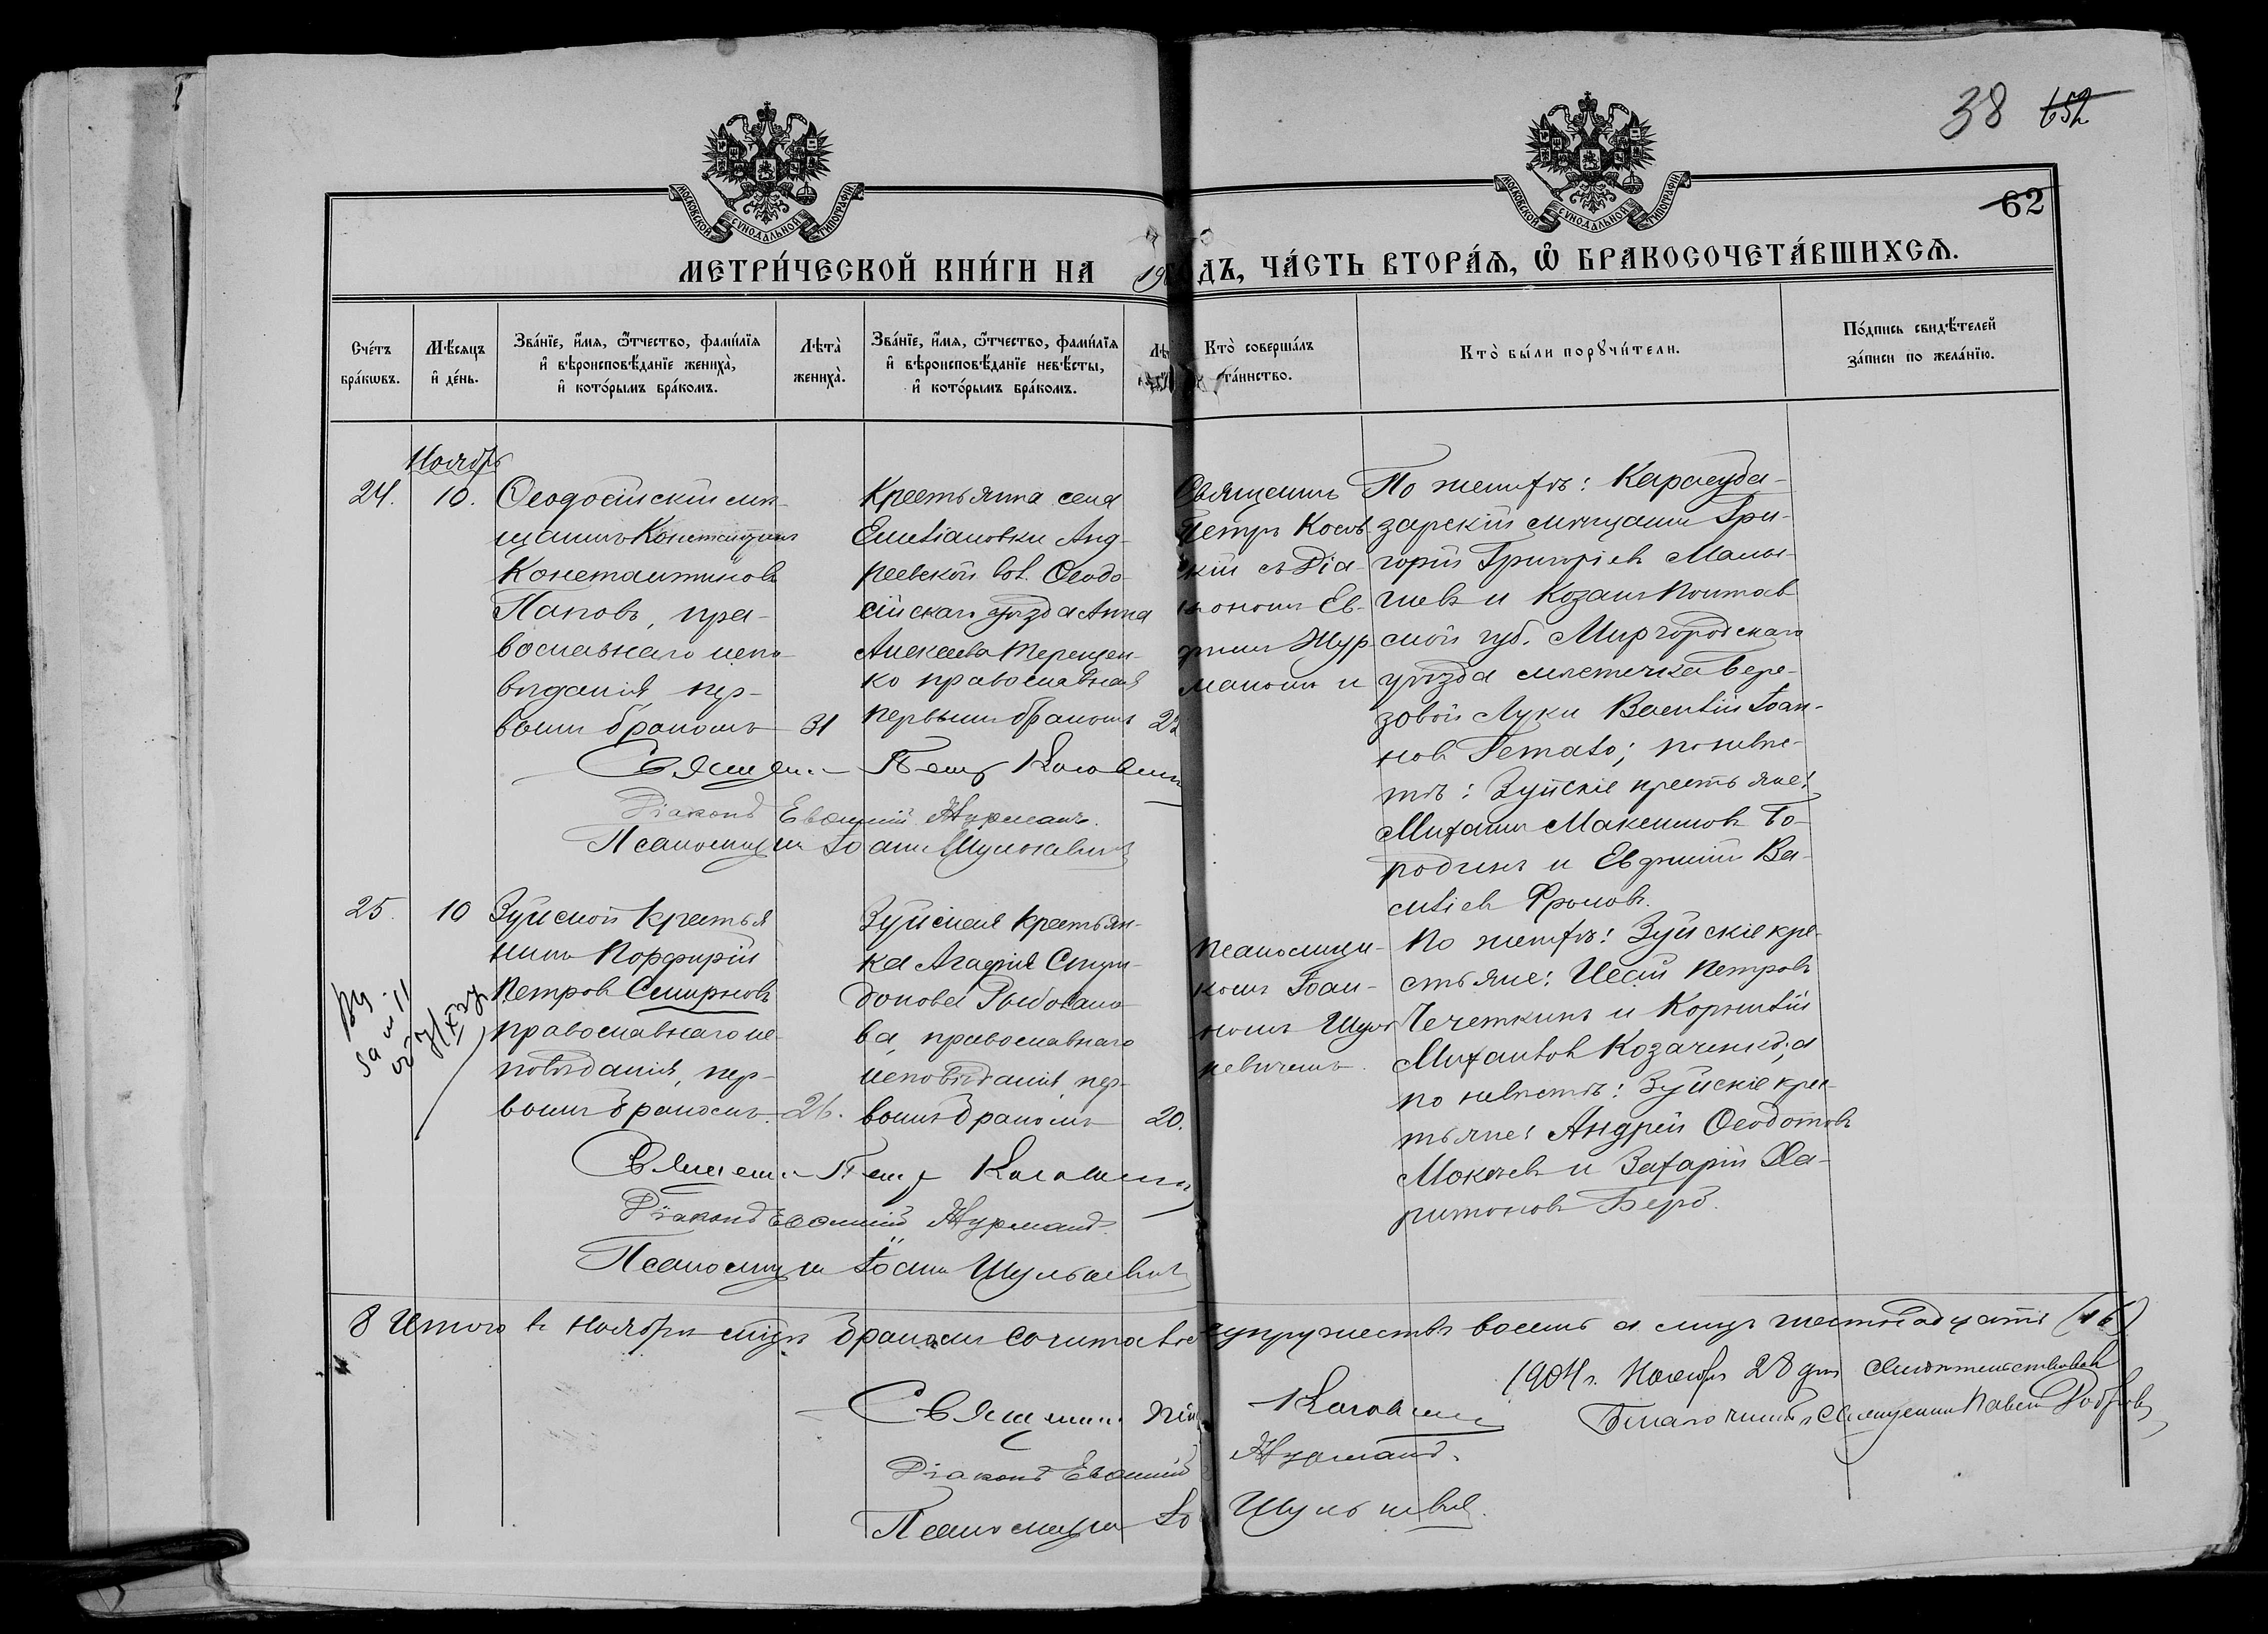 38 652
МОСКОВСКОЙ СУНОДАЛЬНОЙ ТИПОГРАФІИ
МОСКОВСКОЙ СУНОДАЛЬНОЙ ТИПОГРАФІИ
62
МЕТРИ́ЧЕСКОЙ КНИ́ГИ НА 19
ДЪ, ЧА́СТЬ ВТОРА́Я, Ѡ҆ БРАКОСОЧЕТА́ВШИХСЯ.
Сче́тъ бра́кѡвъ.
Мѣ́сяцъ и҆ де́нь.
Зва́нїе, и҆́мя, ѻ҆́тчество, фами́лїя и҆ вѣроисповѣ́данїе жениха̀, и҆ кото́рымъ бра́комъ.
Лѣта̀ жениха̀.
Зва́нїе, и҆́мя, ѻ҆́тчество, фами́лїя и҆ вѣроисповѣ́данїе невѣ́сты, и҆ кото́рымъ бра́комъ.
Лѣ
Кто̀ соверша́лъ та́инство.
Кто̀ бы́ли порꙋчи́тели.
По́дпись свидѣ́телей за́писи по жела́нїю.
Ноябрь
24. 10.
Ѳеодосійскій мѣ-
щанинъ Константинъ
Константиновъ
Паповъ, пра-
вославнаго испо-
вѣданія, пер-
вымъ бракомъ 31
Крестьянка села
Емельяновки Анд-
реевской вол. Ѳеодо-
сійскаго уѣзда Анна
Алексѣева Терещен-
ко православная
первымъ бракомъ 22
Священникъ
Петръ Косов
скій съ Діа-
кономъ Ев-
фиміемъ Жур
маномъ и
По женихѣ: Карасуба-
зарскій мѣщанинъ Гри-
горій Григорьевъ Малы-
шевъ и Козакъ Полтав
ской губ. Миргородскаго
уѣзда мѣстечка Бере-
зовой Луки Василій Іоан-
новъ ; по невѣ-
стѣ: Зуйскіе крестьяне:
Михаилъ Максимовъ Бо-
родинъ и Евфимій Ва-
сильевъ Фроловъ.
Священникъ Петръ
Діаконъ Евѳимій Журманъ.
Псаломщикъ Іоаннъ Шулькевичъ
25. 10
Зуйской крестья
нинъ Порфирій
Петровъ Смирновъ
православнаго ис-
повѣданія, пер-
вымъ бракомъ. 26.
Зуйская крестьян-
ка Агафія Спири-
донова
ва, православнаго
исповѣданія, пер-
вымъ бракомъ 20.
псаломщи-
комъ Іоан-
номъ Шуль
кевичемъ.
По женихѣ: Зуйскіе кре-
стьяне: Петровъ
Чечеткинъ и Корнилій
Михайловъ Козаченко; а
по невѣстѣ: Зуйскіе крес-
тьяне: Андрей Ѳеодотовъ
Мокѣевъ и Захарій Ха-
ритоновъ
Священникъ Петръ
Діаконъ Евѳимій Журманъ.
Псаломщикъ Іоаннъ Шулькевичъ
8 Итого въ ноябрѣ мѣсяцѣ бракомъ сочитавш супружествъ восемь а лицъ шестнадцать (16)
1904 г. Ноября 28 дня свидѣтельствовалъ
Благочинный Священникъ Павелъ
Священникъ
Діаконъ Евѳимій Журманъ.
Псаломщикъ Іо Шулькевичъ.